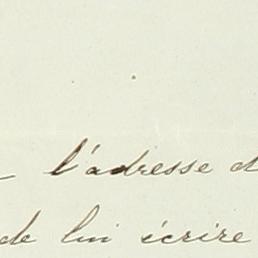 l'adresse d
de lui écrire